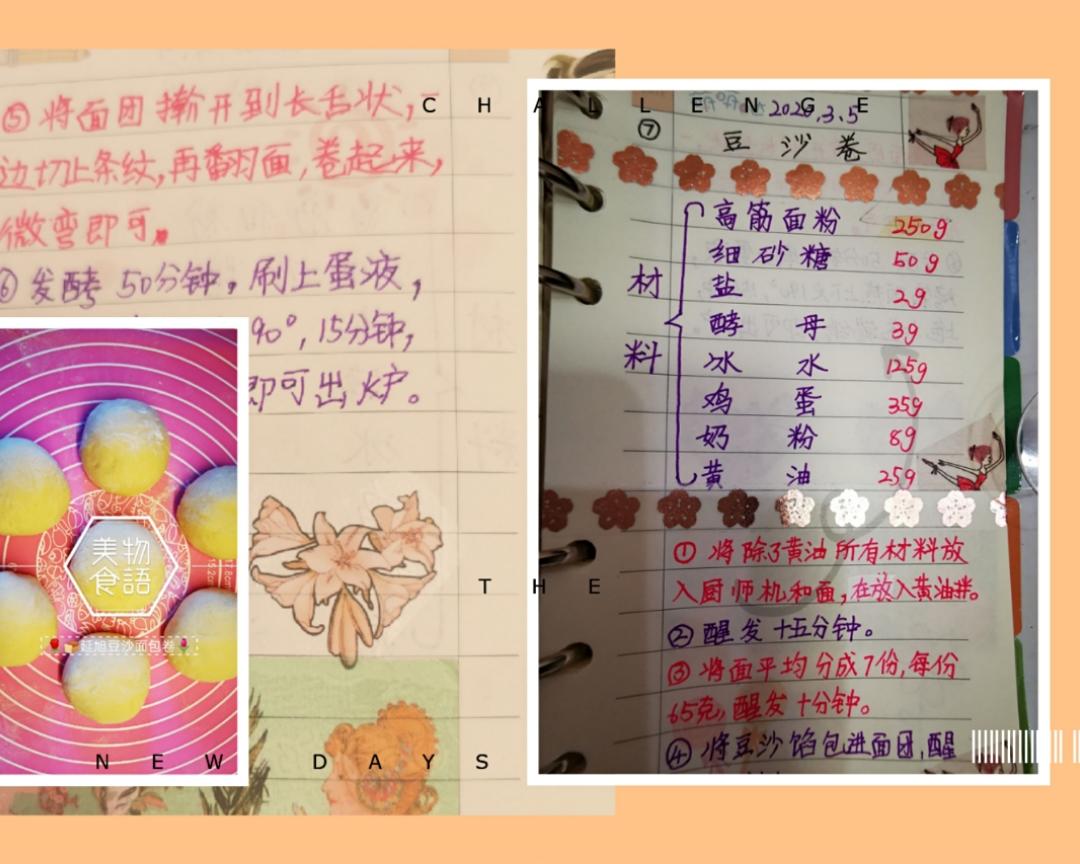 CHALLENGE
⑤将面团擀开到长舌状,一
边切上条纹,再翻面,卷起来,
微弯即可。
⑥发酵50分钟,刷上蛋液,
90°,15分钟,
即可出炉。
美物
食語
豆沙面包卷
2020.3.5
⑦
豆沙卷
材料
高筋面粉 250g
细砂糖 50g
盐 2g
酵母 3g
冰水 125g
鸡蛋 35g
奶粉 8g
黄油 25g
①将除了黄油所有材料放
入厨师机和面,在放入黄油拌。
②醒发十五分钟。
③将面平均分成7份,每份
65克,醒发十分钟。
④将豆沙馅包进面团,醒
THE
NEW DAYS